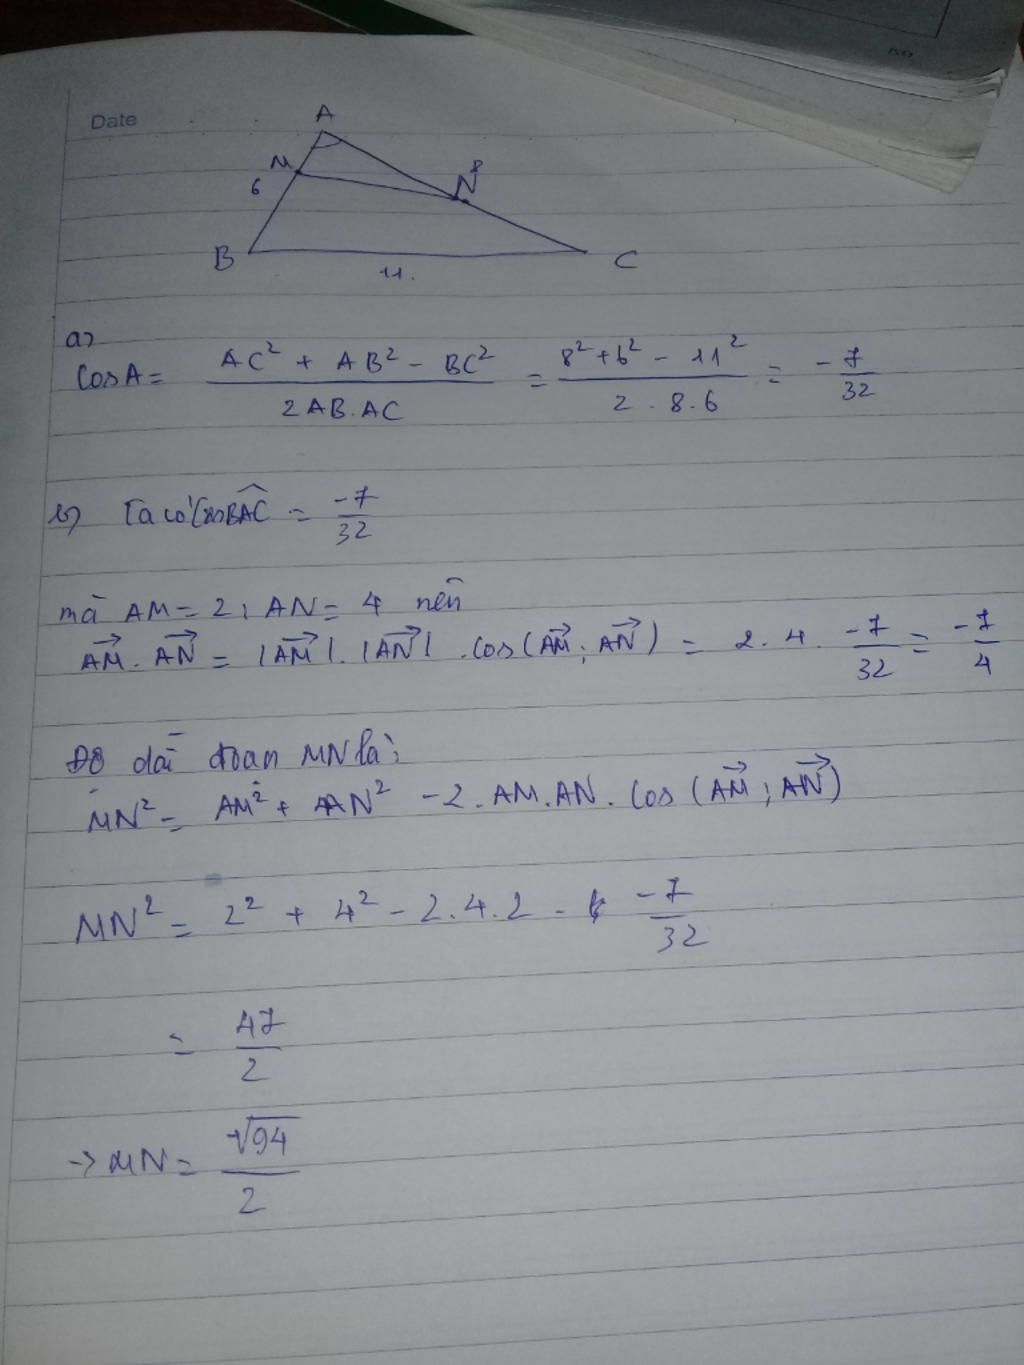 Date
A
M
N
8
6
B
C
11.
a)
CosA = \frac{AC² + AB² - BC²}{2AB.AC} = \frac{8² + 6² - 11²}{2.8.6} = -\frac{7}{32}
b) Ta có Cos\widehat{BAC} = \frac{-7}{32}
mà AM = 2; AN = 4 nên
\overrightarrow{AM}.\overrightarrow{AN} = |\overrightarrow{AM}|.|\overrightarrow{AN}|.cos(\overrightarrow{AM};\overrightarrow{AN}) = 2.4.\frac{-7}{32} = \frac{-7}{4}
Độ dài đoạn MN là:
MN² = AM² + AN² - 2.AM.AN.Cos(\overrightarrow{AM};\overrightarrow{AN})
MN² = 2² + 4² - 2.4.2 - \frac{-7}{32}
= \frac{47}{2}
→ MN = \frac{\sqrt{94}}{2}